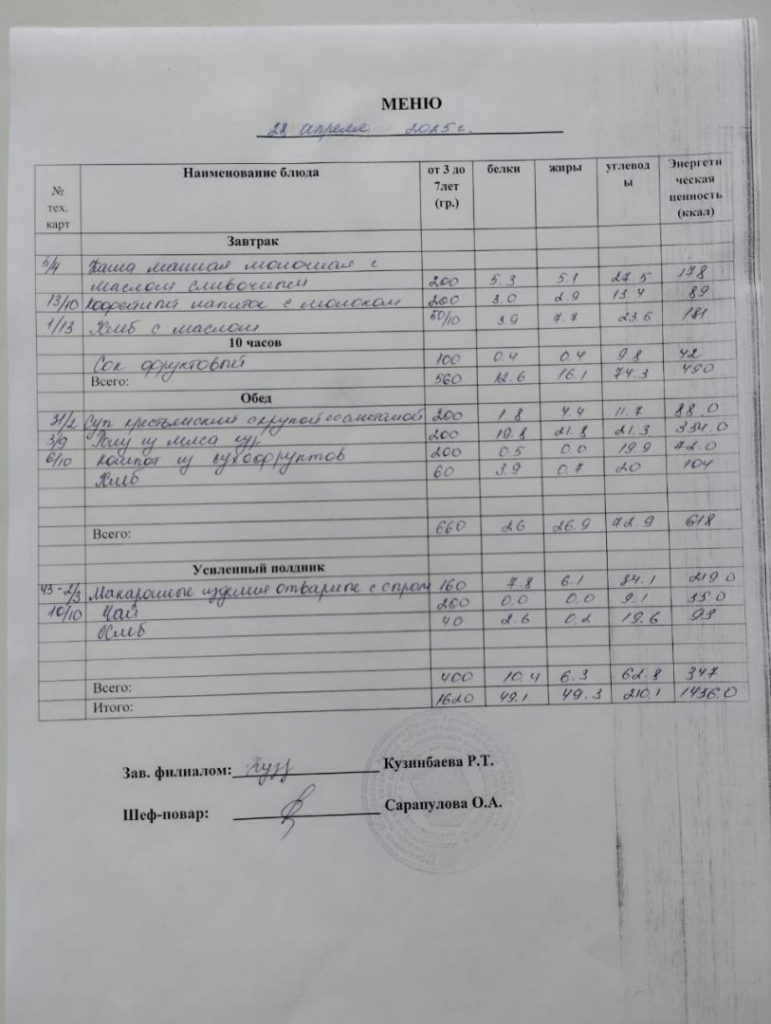 МЕНЮ
апреля 2025 г.
№ тех. карт | Наименование блюда | от 3 до 7лет (гр.) | белки | жиры | углевод ы | Энергети ческая ценность (ккал)
Завтрак
5/4 Каша манная молочная с
маслом сливочным 200 5.3 5.1 27.5 178
13/10 Кофейный напиток с молоком 200 3.0 2.9 13.4 89
1/13 Хлеб с маслом 50/10 3.9 7.7 23.6 181
10 часов
Сок фруктовый 100 0.4 0.4 9.8 42
Всего: 560 12.6 16.1 74.3 490
Обед
31/2 Суп крестьянский с крупой со сметаной 200 1.8 4.4 11.7 88.0
3/9 Рагу из мяса кур 200 19.8 21.8 21.3 354.0
6/10 Компот из сухофруктов 200 0.5 0.0 19.9 72.0
Хлеб 60 3.9 0.7 20 104
Всего: 660 26 26.9 72.9 618
Усиленный полдник
43-2/3 Макаронные изделия отварные с сыром 160 7.8 6.1 34.1 219.0
10/10 Чай 200 0.0 0.0 9.1 35.0
Хлеб 40 2.6 0.2 19.6 93
Всего: 400 10.4 6.3 62.8 347
Итого: 1620 49.1 49.3 210.1 1436.0
Зав. филиалом: Кузинбаева Р.Т.
Шеф-повар: Сарапулова О.А.